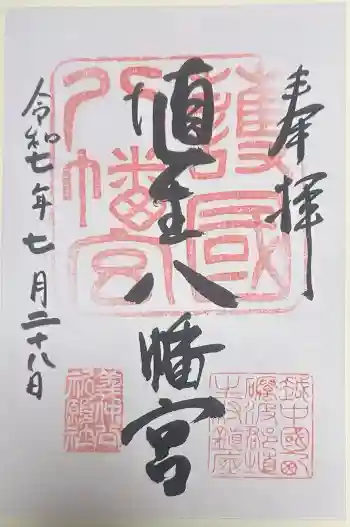 奉拝
埴生八幡宮
令和七年七月二十八日
護國
八幡宮
越中國
礪波郡埴
生村鎮座
義仲公
祈願社